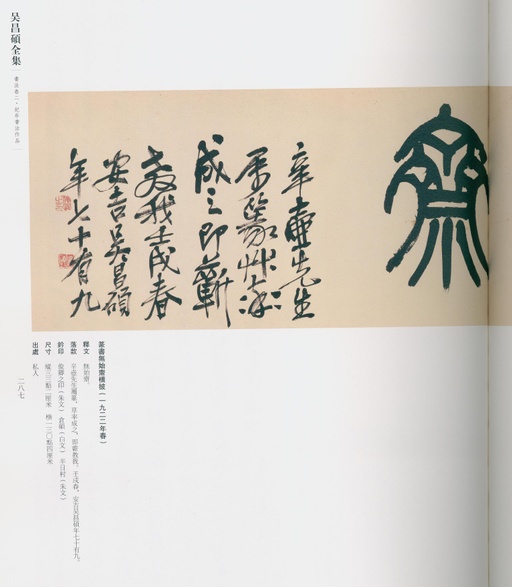 吴昌碩全集
書法卷二・紀年書法作品
齋
辛壺先生
屬篆草率
成之即蘄
教我壬戌春
安吉吳昌碩
年七十有九
篆書無始齋橫披（一九二二年春）
釋文　無始齋。
落款　辛壺先生屬篆，草率成之，即蘄教我。壬戌春，安吉吳昌碩年七十有九。
鈐印　俊卿之印（朱文）　倉碩（白文）　半日村（朱文）
尺寸　縱三三點二厘米　橫一三〇點四厘米
出處　私人
二八七